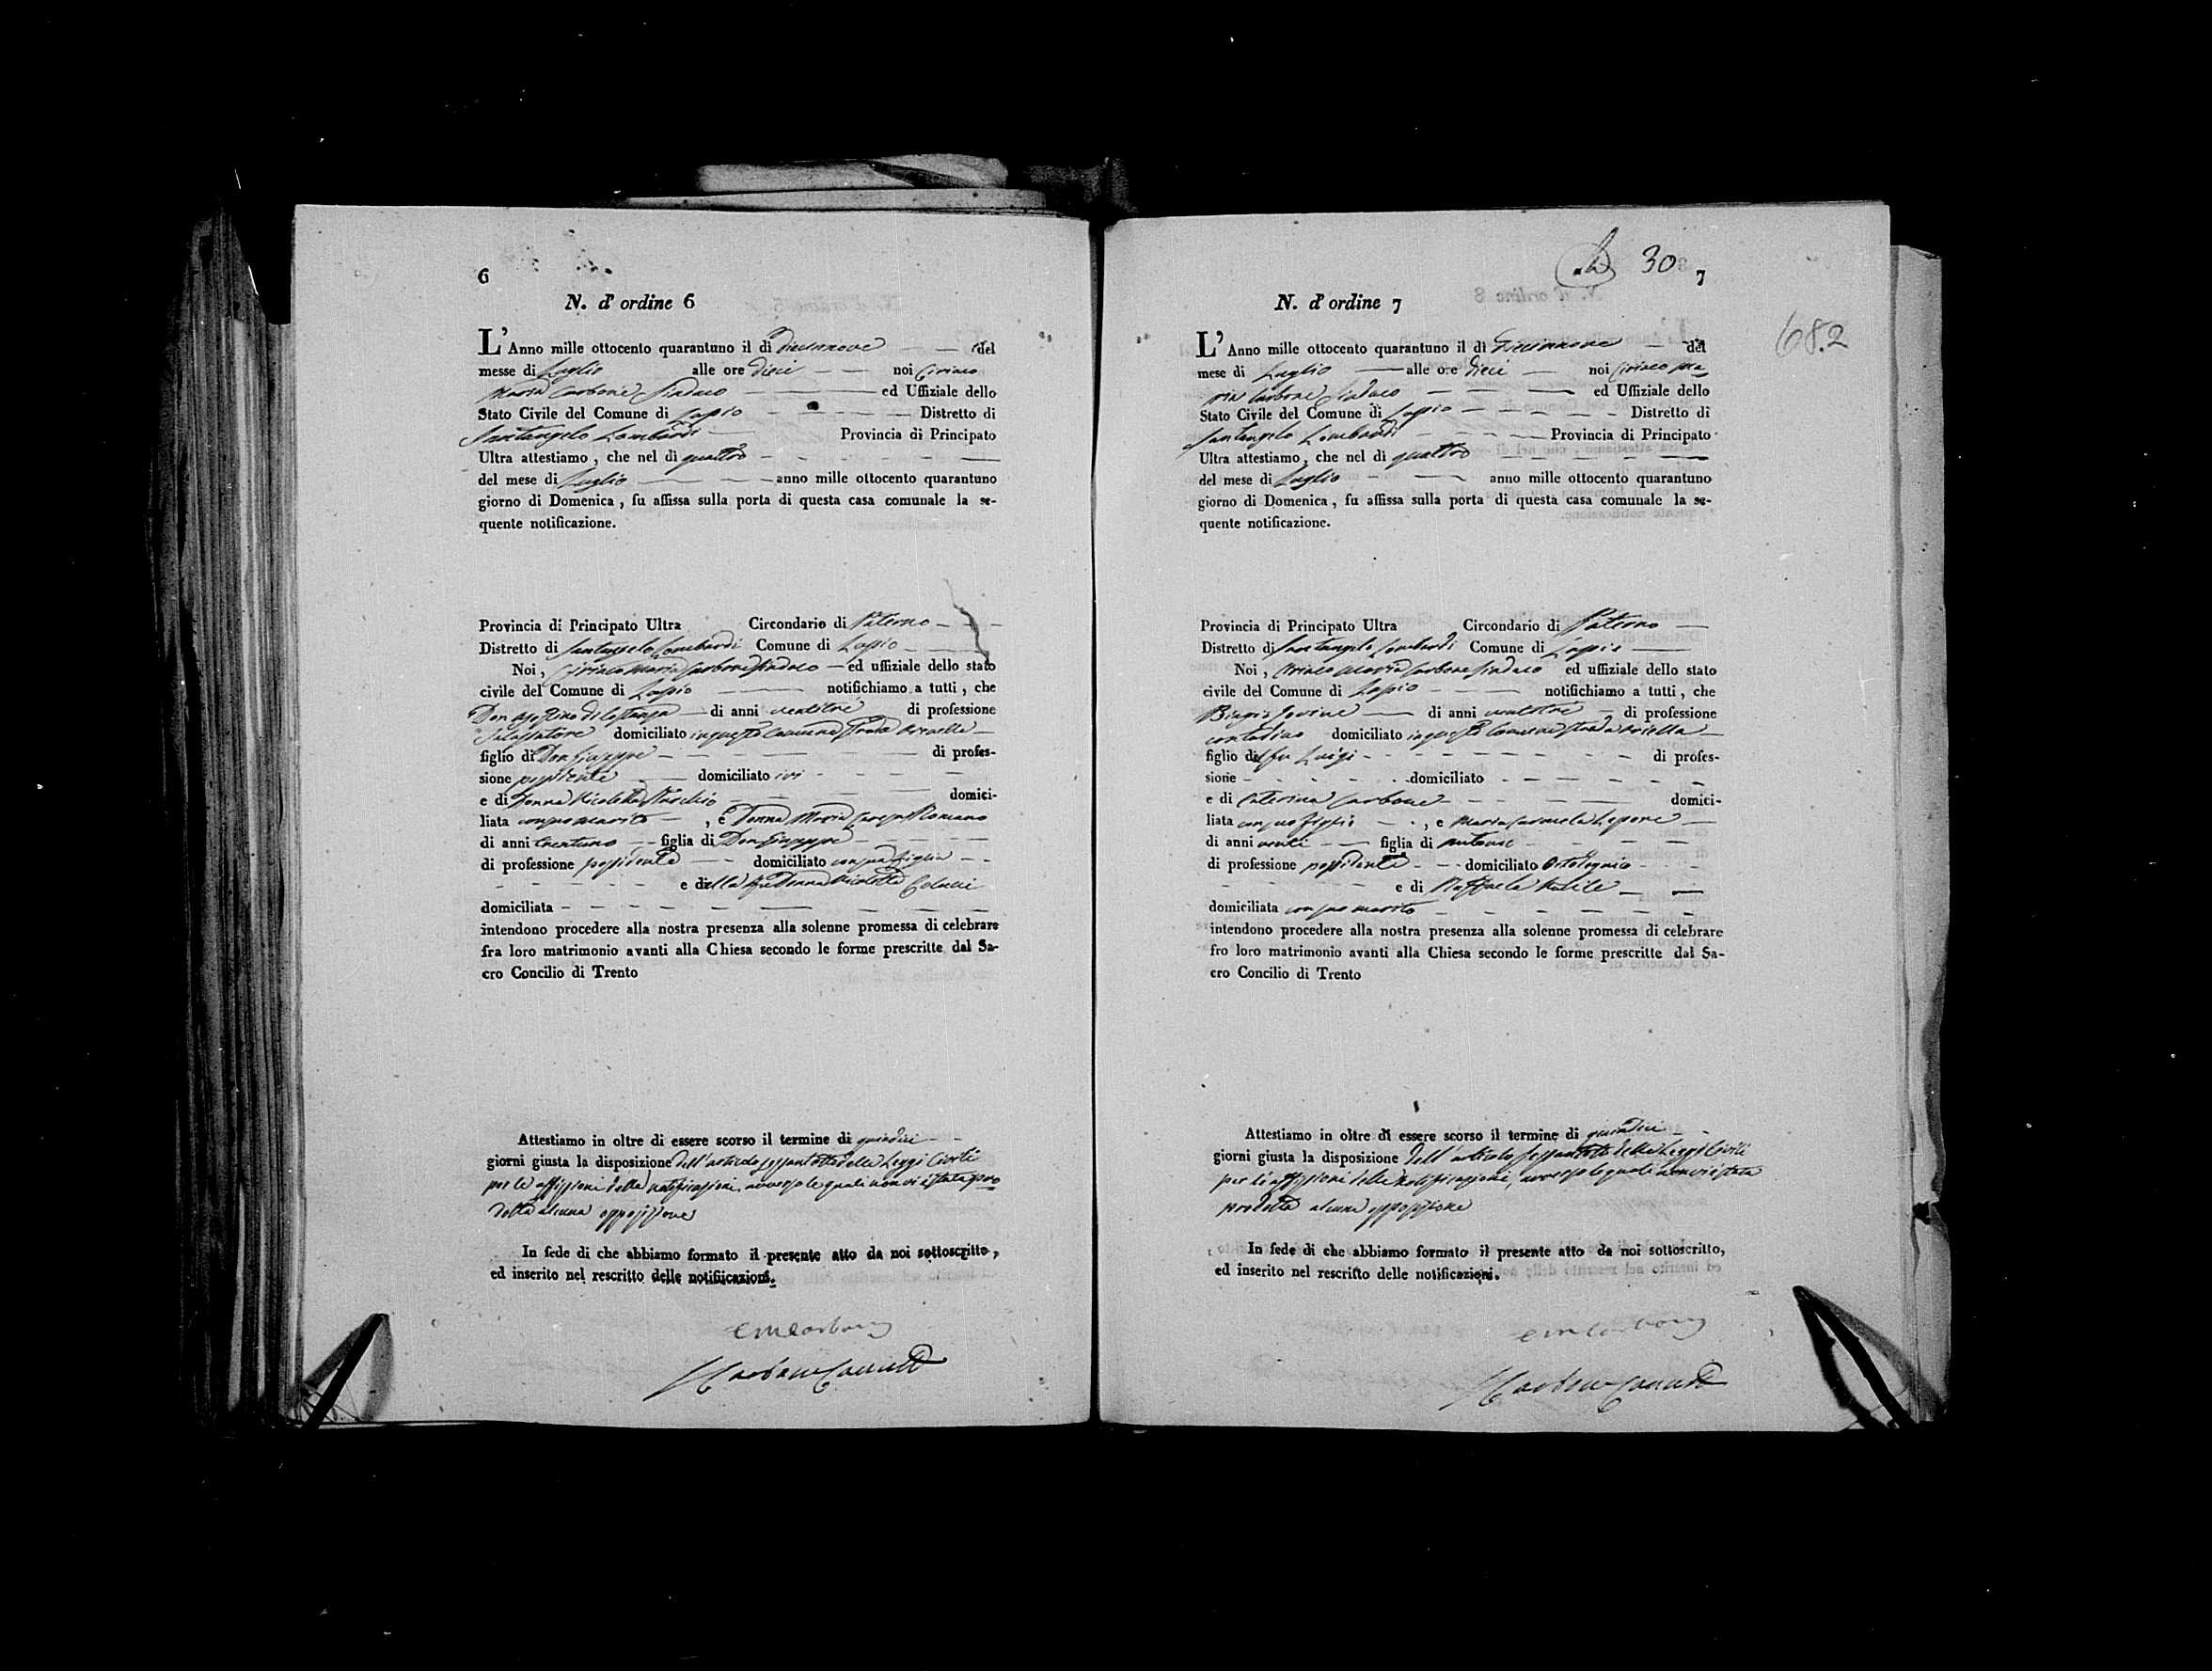 6
N. d' ordine 6
L' Anno mille ottocento quarantuno il dì diecinnove del
messe di Luglio alle ore dieci noi Ciriaco
Maria Carbone Sindaco ed Uffiziale dello
Stato Civile del Comune di Lapio Distretto di
Santangelo Lombardi Provincia di Principato
Ultra attestiamo, che nel dì quattro
del mese di Luglio anno mille ottocento quarantuno
giorno di Domenica, fu affissa sulla porta di questa casa comunale la se-
quente notificazione.
Provincia di Principato Ultra Circondario di Paterno
Distretto di Santangelo Lombardi Comune di Lapio
Noi, Ciriaco Maria Carbone Sindaco ed uffiziale dello stato
civile del Comune di Lapio notifichiamo a tutti, che
Don di anni ventitre di professione
domiciliato in questo Comune Strada
figlio di Don Giuseppe di profes-
sione possidente domiciliato ivi
e di Donna Nicoletta domici-
liata con suo marito, e Donna Maria Romano
di anni trentuno figlia di Don Giuseppe
di professione possidente domiciliato con sua figlia
e della fu Donna Nicoletta Colucci
domiciliata
intendono procedere alla nostra presenza alla solenne promessa di celebrare
fra loro matrimonio avanti alla Chiesa secondo le forme prescritte dal Sa-
cro Concilio di Trento
Attestiamo in oltre di essere scorso il termine di quindici
giorni giusta la disposizione dell'articolo sessantotto delle Leggi Civili
per le affissioni della notificazioni, avverso le quali non vi è stata pro
dotta alcuna opposizione
In fede di che abbiamo formato il presente atto da noi sottoscritto,
ed inserito nel rescritto delle notifiicazioni.
CMCarbone
30 7
N. d' ordine 7
682
L' Anno mille ottocento quarantuno il dì diecinnove del
mese di Luglio alle ore dieci noi Ciriaco Ma
ria Carbone Sindaco ed Uffiziale dello
Stato Civile del Comune di Lapio Distretto di
Santangelo Lombardi Provincia di Principato
Ultra attestiamo, che nel dì quattro
del mese di Luglio anno mille ottocento quarantuno
giorno di Domenica, fu affissa sulla porta di questa casa comunale la se-
quente notificazione.
Provincia di Principato Ultra Circondario di Paterno
Distretto di Santangelo Lombardi Comune di Lapio
Noi, Ciriaco Maria Carbone Sindaco ed uffiziale dello stato
civile del Comune di Lapio notifichiamo a tutti, che
Biagio Iovine di anni ventitre di professione
contadino domiciliato in questo Comune strada
figlio del fu Luigi di profes-
sione domiciliato
e di Caterina Carbone domici-
liata con suo figlio, e Maria Carmela Lepore
di anni venti figlia di Antonio
di professione possidente domiciliato
e di Raffaela
domiciliata con suo marito
intendono procedere alla nostra presenza alla solenne promessa di celebrare
fro loro matrimonio avanti alla Chiesa secondo le forme prescritte dal Sa-
cro Concilio di Trento
Attestiamo in oltre di essere scorso il termine di quindici
giorni giusta la disposizione dell'articolo sessantotto delle Leggi Civili
per le affissioni delle notificazioni, avverso le quali non vi è stata
prodotta alcuna opposizione
In fede di che abbiamo formato il presente atto da noi sottoscritto,
ed inserito nel rescritto delle notificazioni.
CMCarbone